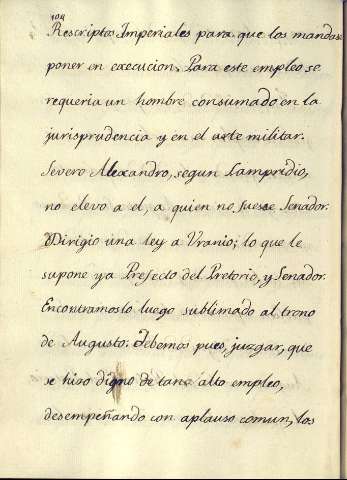 104
Rescriptos Imperiales para que los mandase
poner en execucion. Para este empleo se
requeria un hombre consumado en la
jurisprudencia y en el arte militar.
Severo Alexandro, segun Lampridio,
no elevo a el, a quien no fuese Senador.
Dirigio una ley a Uranio; lo que le
supone ya Prefecto del Pretorio, y Senador.
Encontramoslo luego sublimado al trono
de Augusto. Debemos pues, juzgar, que
se hiso digno de tan alto empleo,
desempeñando con aplauso comun, los